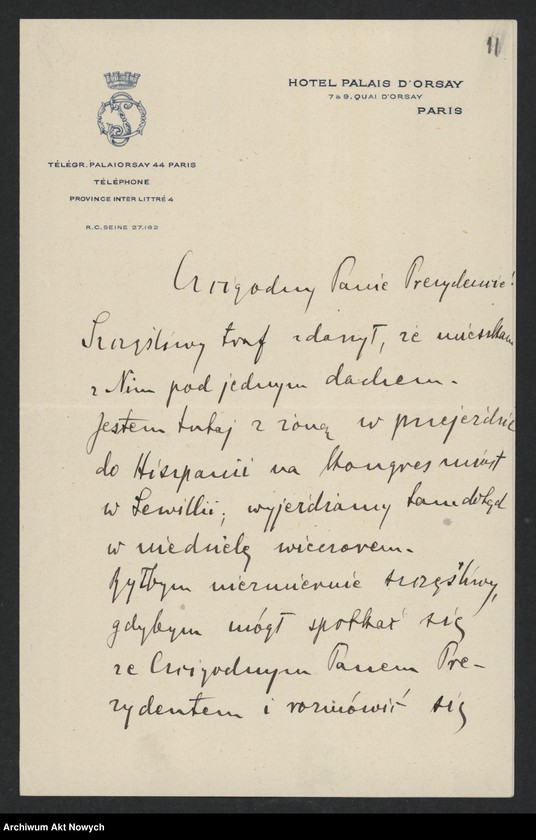 11
HOTEL PALAIS D'ORSAY
7 & 9, QUAI D'ORSAY
PARIS
TÉLÉGR. PALAIORSAY 44 PARIS
TÉLÉPHONE
PROVINCE INTER LITTRÉ 4
R.C. SEINE 27.182
Czcigodny Panie Prezydencie!
Szczęśliwy traf zdarzył, że mieszkam
z Nim pod jednym dachem.
Jestem tutaj z żoną w przejeździe
do Hiszpanii na Kongres miast
w Sewillii; wyjeżdżamy tamdotąd
w niedzielę wieczorem.
Byłbym niezmiernie szczęśliwy,
gdybym mógł spotkać się
ze Czcigodnym Panem Pre-
zydentem i rozmówić się
Archiwum Akt Nowych